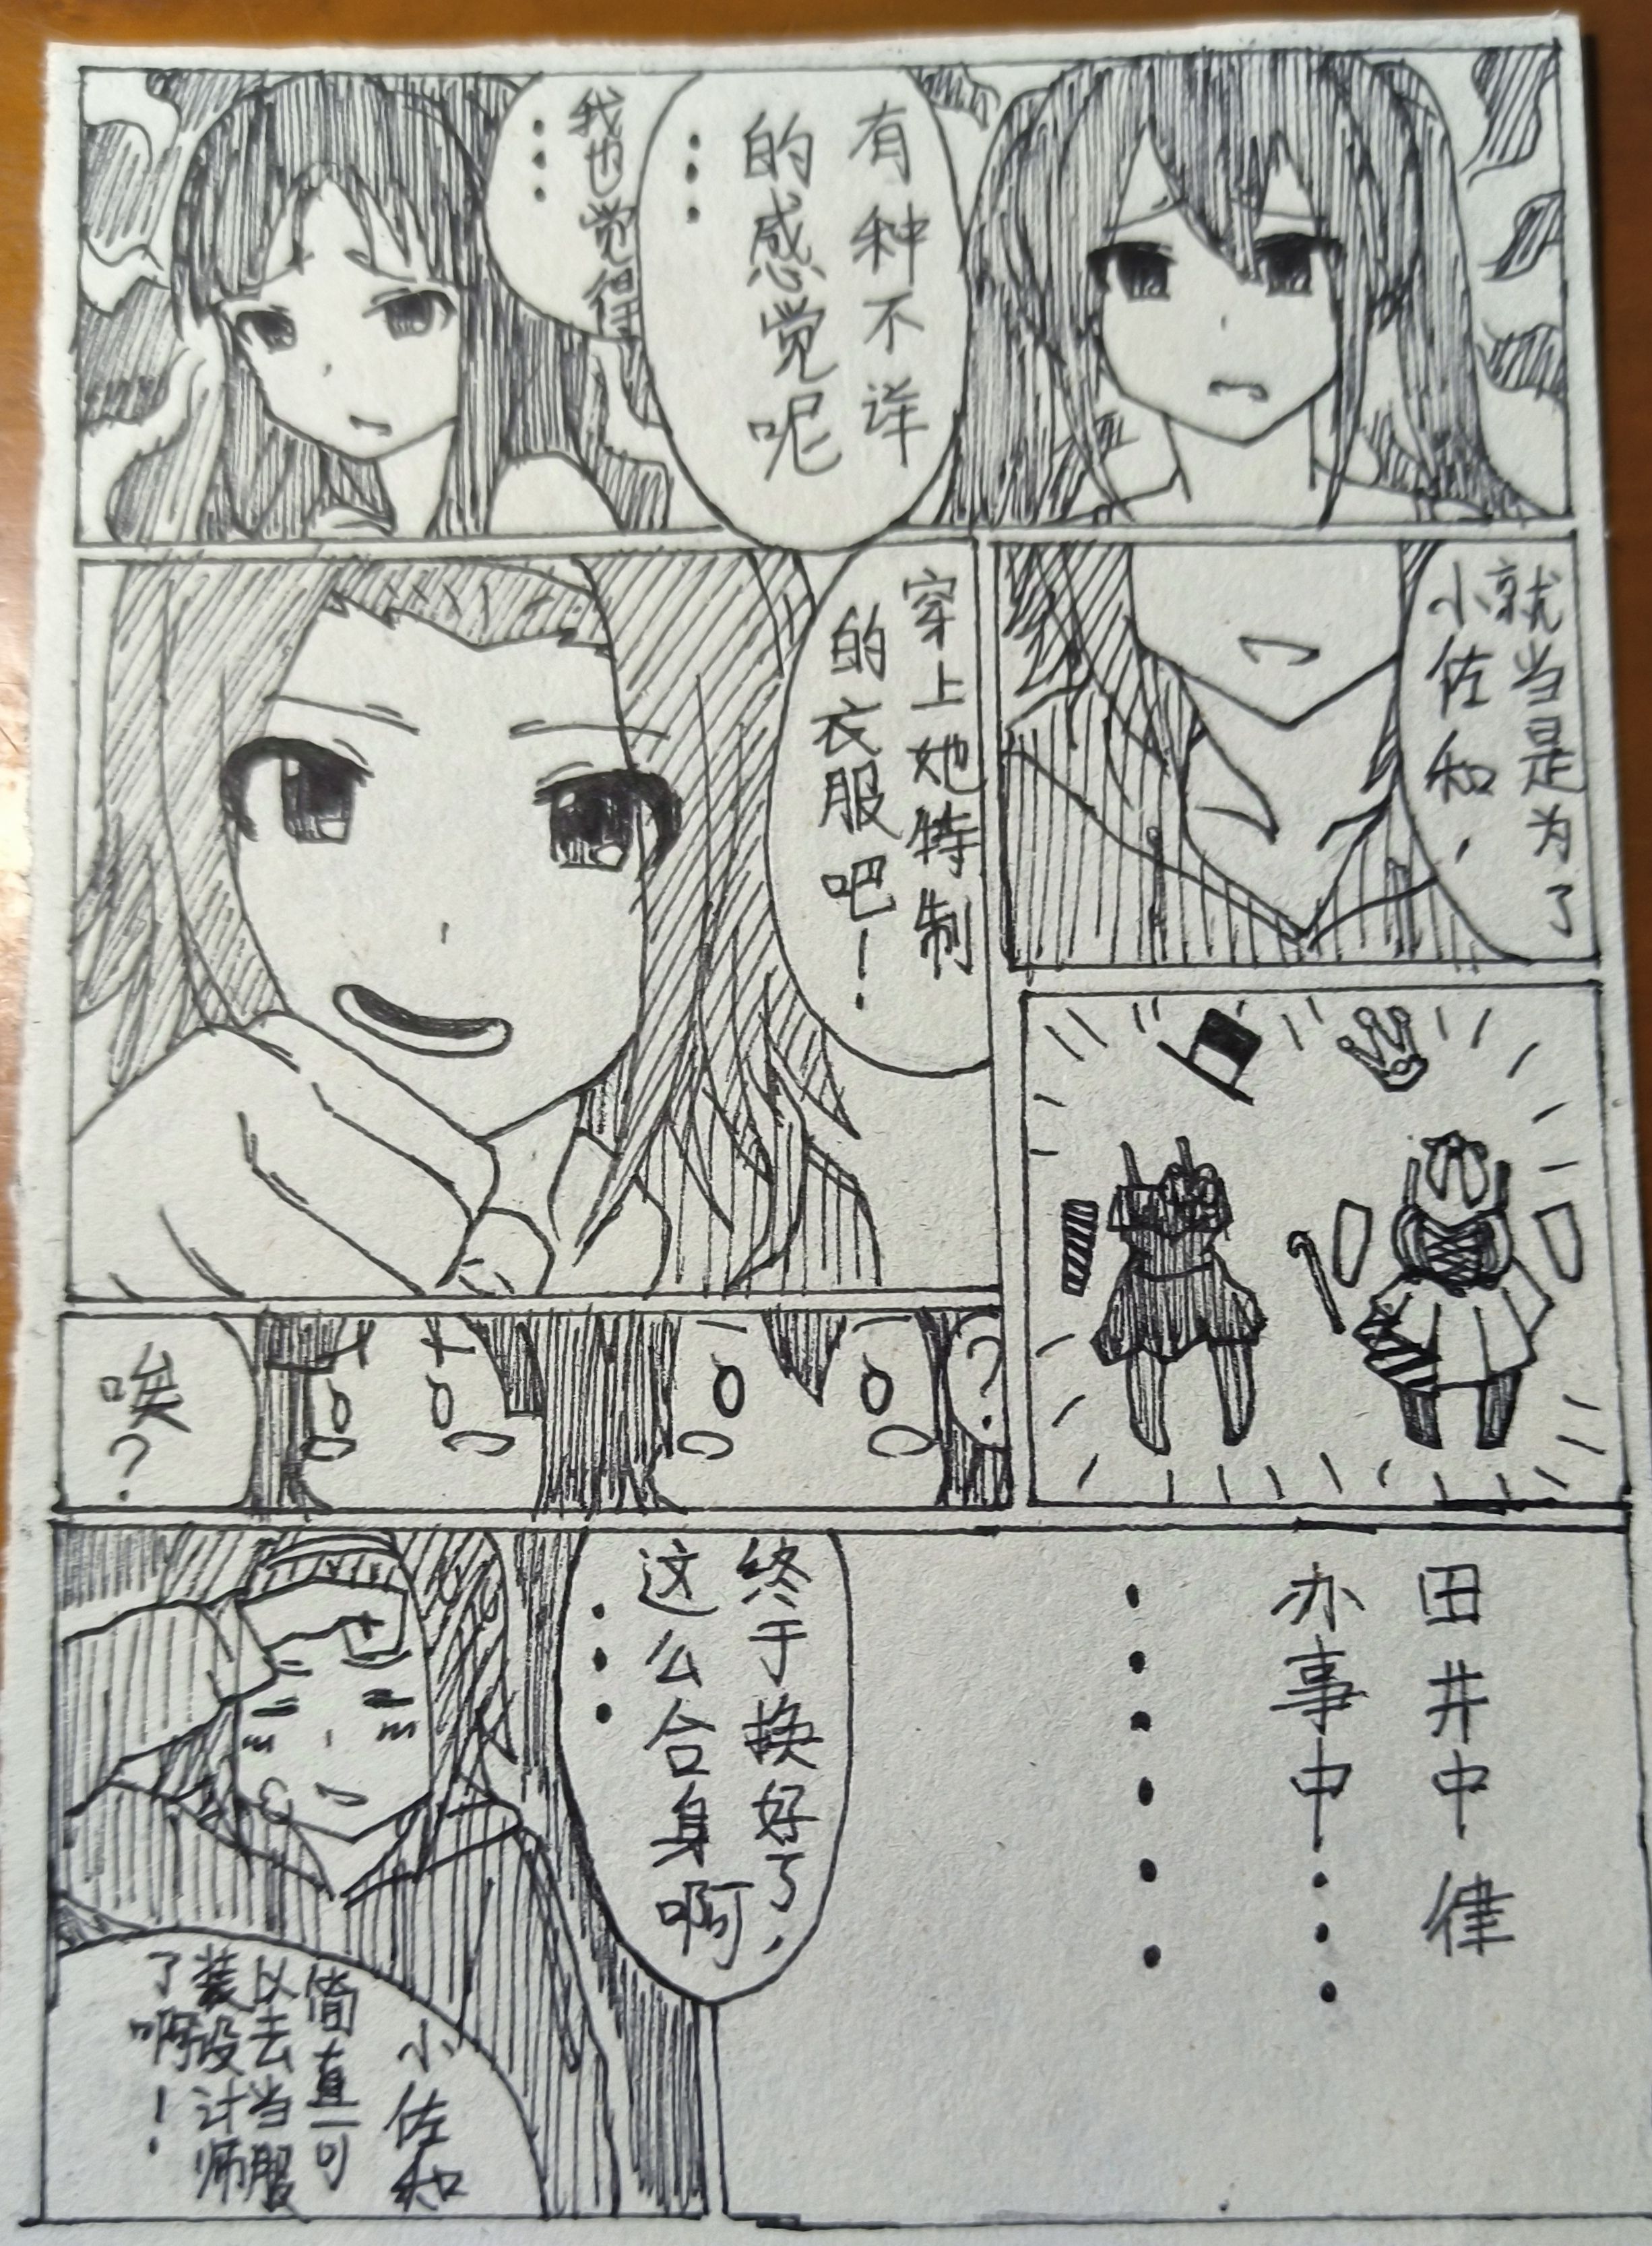 有种不详
的感觉呢
...
我也觉得
...
就当是为了
小佐和，
穿上她特制
的衣服吧！
？
唉？
田井中律
办事中...
......
终于换好了，
这么合身啊
...
小佐和
简直可
以去当服
装设计师
了啊！